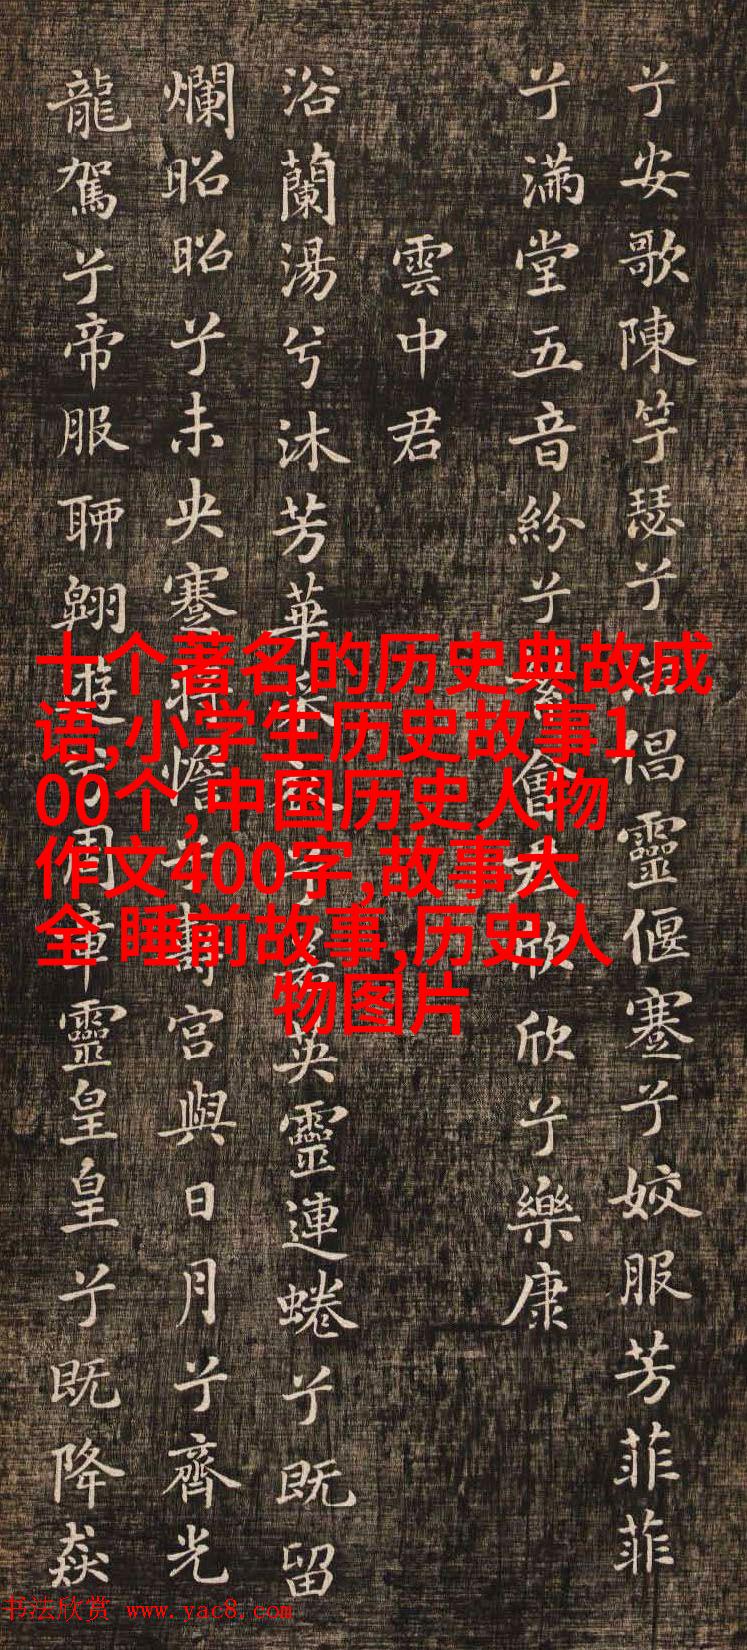 兮安歌陳竽瑟兮浩倡靈偃蹇兮姣服芳菲菲
兮滿堂五音紛兮繁會君欣欣兮樂康
雲中君
浴蘭湯兮沐芳華采衣兮若英靈連蜷兮既留
爛昭昭兮未央蹇將憺兮壽宮與日月兮齊光
龍駕兮帝服聊翱遊兮周章靈皇皇兮既降猋
十个著名的历史典故成
语,小学生历史故事1
00个,中国历史人物
作文400字,故事大
全 睡前故事,历史人
物图片
书法欣赏 www.yac8.com